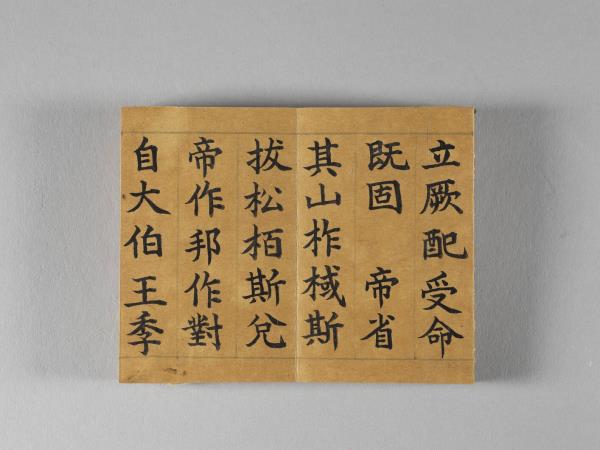 立厥配受命
既固　帝省
其山柞棫斯
拔松栢斯兌
帝作邦作對
自大伯王季